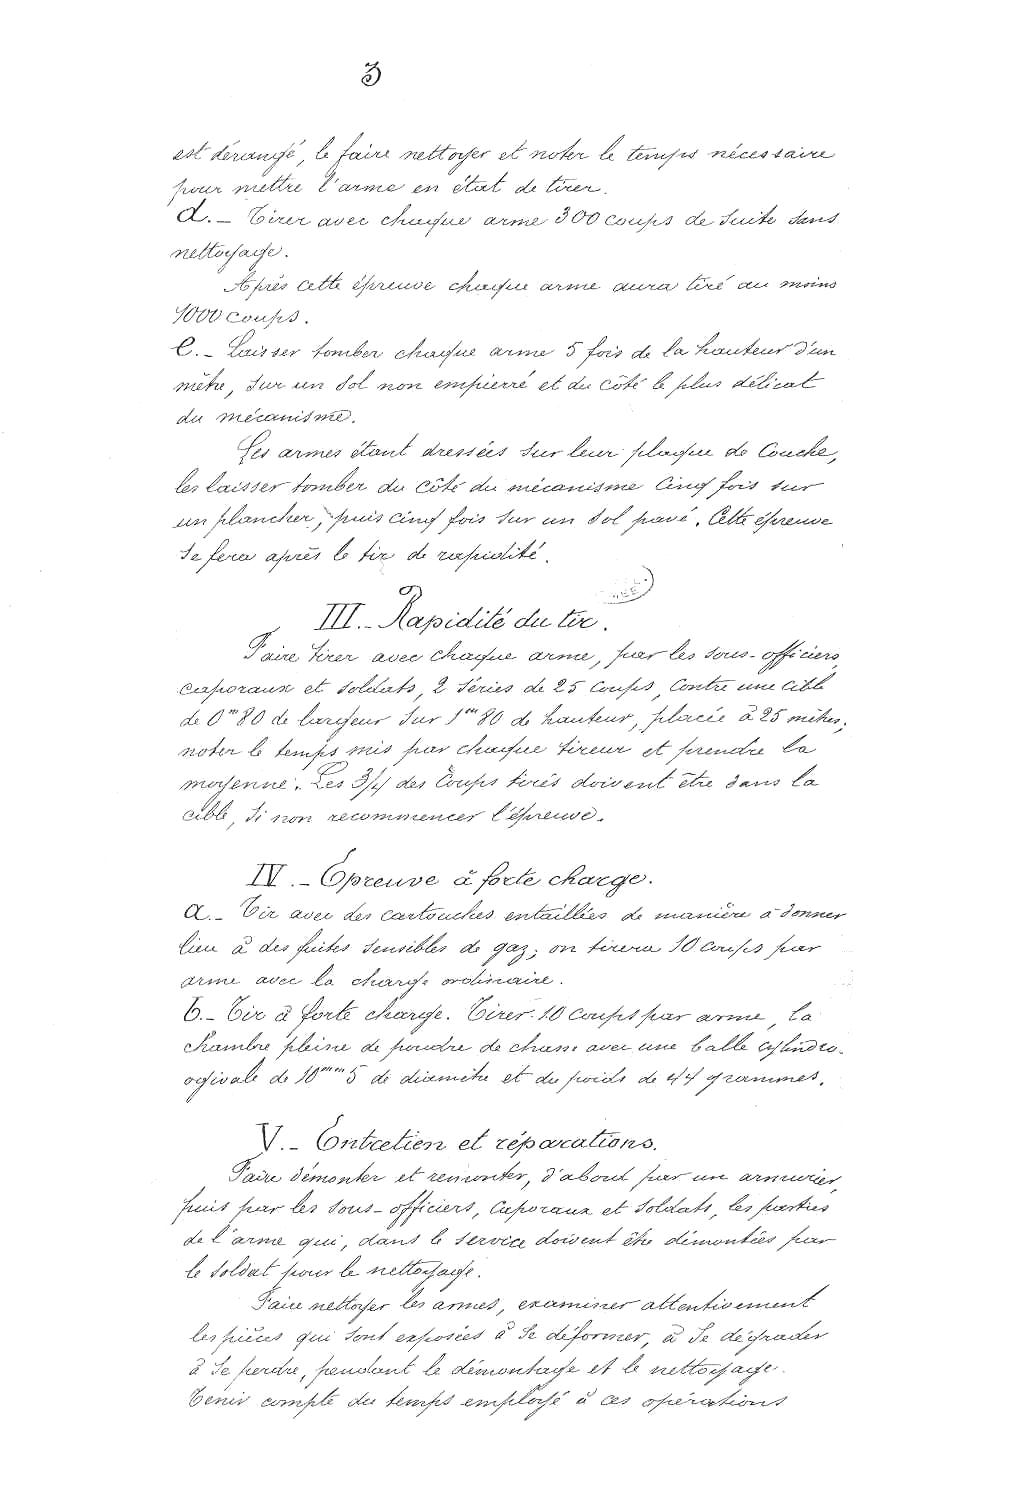 3
est dérangé, le faire nettoyer et noter le temps nécessaire
pour mettre l'arme en état de tirer.
d. _ Tirer avec chaque arme 300 coups de suite sans
nettoyage.
Après cette épreuve chaque arme aura tiré au moins
1000 coups.
e. _ Laisser tomber chaque arme 5 fois de la hauteur d'un
mètre, sur un sol non empierré et du côté le plus délicat
du mécanisme.
Les armes étant dressées sur leur plaque de couche,
les laisser tomber du côté du mécanisme cinq fois sur
un plancher, puis cinq fois sur un sol pavé. Cette épreuve
se fera après le tir de rapidité.
III. _ Rapidité du tir.
Faire tirer avec chaque arme, par les sous-officiers,
caporaux et soldats, 2 séries de 25 coups, contre une cible
de 0m80 de largeur sur 1m80 de hauteur, placée à 25 mètres;
noter le temps mis par chaque tireur et prendre la
moyenne. Les 3/4 des coups tirés doivent être dans la
cible, si non recommencer l'épreuve.
IV. _ Épreuve à forte charge.
a. _ Tir avec des cartouches entaillées de manière à donner
lieu à des fuites sensibles de gaz; on tirera 10 coups par
arme avec la charge ordinaire.
b. _ Tir à forte charge. Tirer 10 coups par arme, la
chambre pleine de poudre de chasse avec une balle cylindro-
ogivale de 10mm5 de diamètre et du poids de 44 grammes.
V. _ Entretien et réparations.
Faire démonter et remonter, d'abord par un armurier,
puis par les sous-officiers, caporaux et soldats, les parties
de l'arme qui, dans le service doivent être démontées par
le soldat pour le nettoyage.
Faire nettoyer les armes, examiner attentivement
les pièces qui sont exposées à se déformer, à se dégrader
à se perdre, pendant le démontage et le nettoyage.
Tenir compte du temps employé à ces opérations